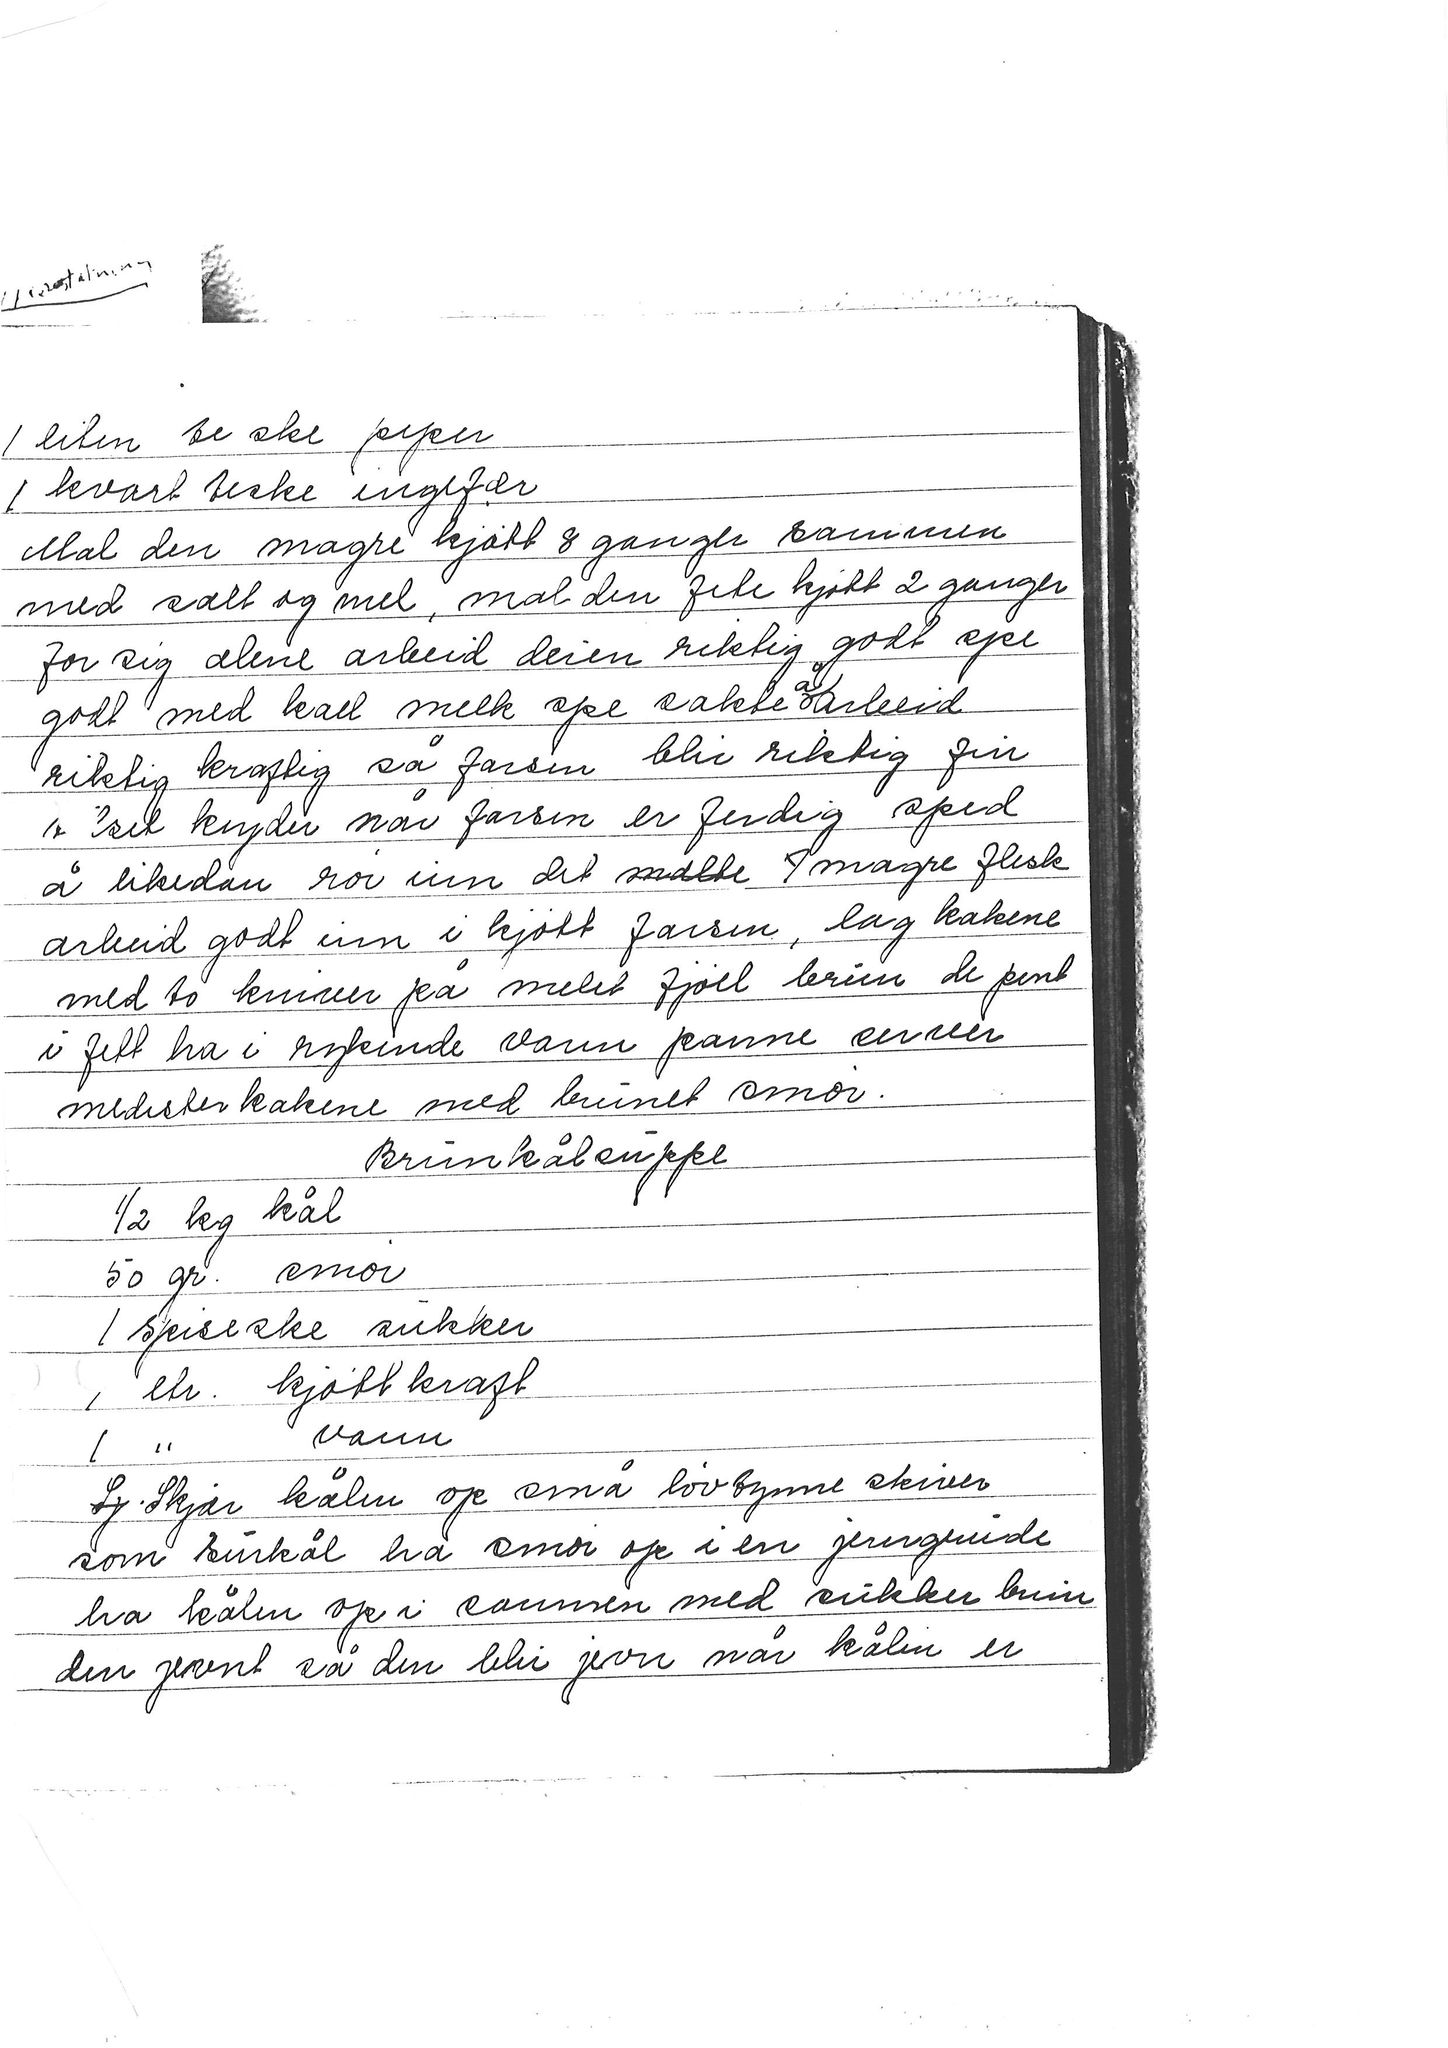 1 liten te ske peper
1 kvart teske ingefær
Mal den magre kjött 8 ganger sammen
med salt og mel, mal den fete kjött 2 ganger
for sig alene arbeid deien riktig godt spe
godt med kall melk spe sakte å arbeid
riktig kraftig så farsen blir riktig fin
set kryder når farsen er ferdig sped
å likedan rör inn det malte magre flesk
arbeid godt inn i kjött farsen, lag kakene
med to kniver på melet fjöll brun de pent
i fett ha i rykende vann panne server
medisterkakene med brunet smör.
Brunkålsuppe
1/2 kg kål
50 gr. smör
1 spiseske sukker
1 ltr. kjöttkraft
1 " vann
Skjær kålen op små lövtynne skiver
som surkål ha smör op i en jerngrude
ha kålen op i sammen med sukker brun
den jevnt så den blir jevn når kålen er